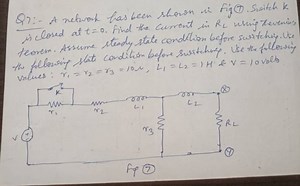 Q7:- A network has been shown in Fig ⑦. Switch K
is closed at t=0. Find the current in RL using Thevenins
teorem. Assume steady state condition before switching. Use
the following stat condition before switching. Use the following
values: r₁ = r₂ = r₃ = 10Ω, L₁ = L₂ = 1H & V = 10 volts
K
r₁
r₂
L₁
L₂
X
V
r₃
RL
Y
Fig ⑦